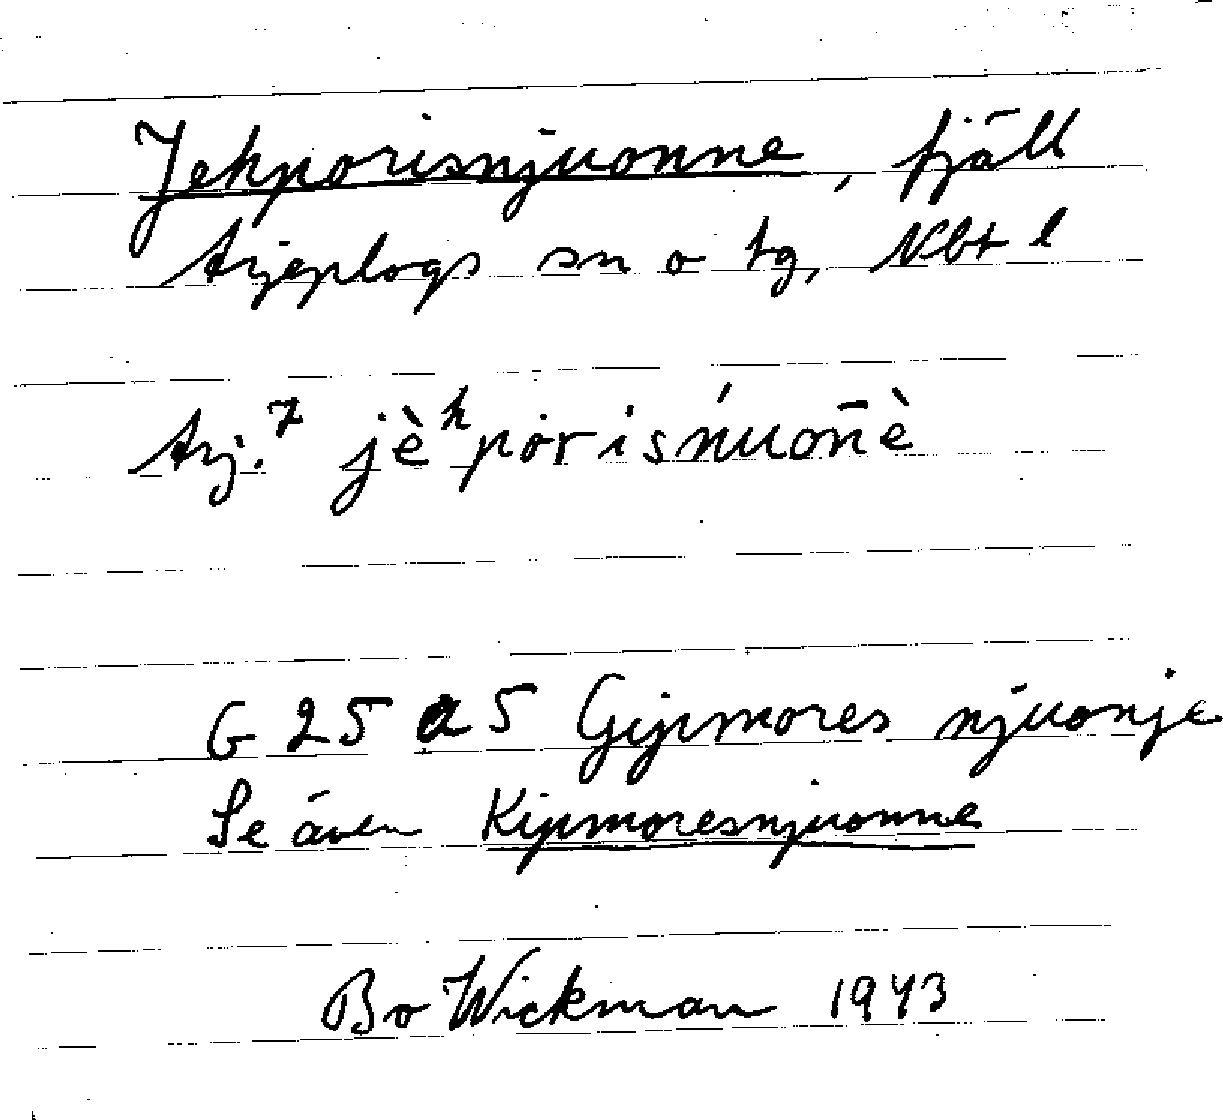 Jehporisnjuonne, fjäll
Arjeplogs sn o tg, Nbt l
Arj.⁷ jèʰpȯrisńuōn̄è
G 25 a 5 Gijpmores njuonje
Se även Kipmoresnjuonne
Bo Wickman 1943